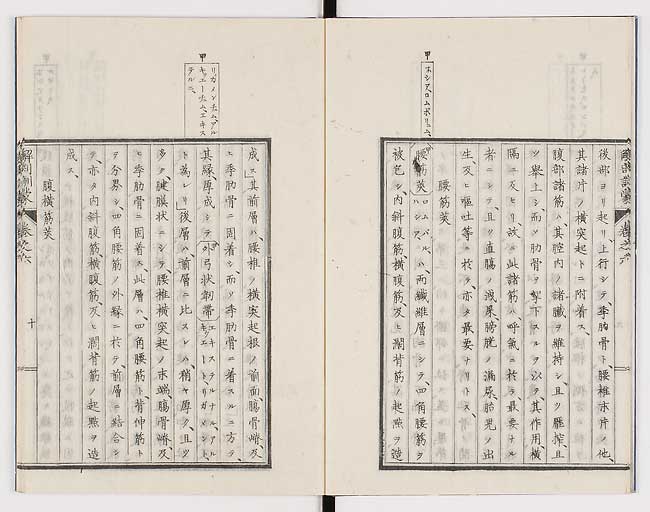 後部ヨリ起リ、上行シテ、季肋骨ト、腰椎末片ノ他、
其諸片ノ横突起トニ附着ス、
腹部諸筋ハ、其腔内ノ諸臓ヲ維持シ、且ツ壓搾、且
ツ擧上シ、而ツ肋骨ヲ掣下スルヲ以ラ、其作用、横
隔ニ及ヒリ、故ニ此諸筋ハ、呼氣ニ於テ、最要ナル
者ニシテ、且ツ直膓ノ洩尿、膀胱ノ漏尿、胎兒ノ出
生、及ヒ嘔吐等ニ於テ、亦タ最要ナリトス、
腰筋莢
甲
腰筋莢
ハ、兩纖維層ニシテ、四角腰筋ヲ
被包シ、内斜腹筋、横腹筋、及ヒ濶背筋ノ起㸃ヲ造
成ス、其前層ハ、腰椎ノ横突起根ノ前面、膓骨嵴、及
ヒ季肋骨ニ固着シ、而ツ季肋骨ニ着スルニ方テ、
其縁、厚成シテ、外弓状韌帶
ト為レリ、後層ハ、前層ニ比スレハ、稍ヤ厚ク、且ツ
多ク腱膜状ニシテ、腰椎横突起ノ末端、膓骨嵴、及
ヒ季肋骨ニ固着ス、此層ハ、四角腰筋ト背伸筋ト
ヲ分界シ、四角腰筋ノ外縁ニ於テ、前層ニ結合シ
テ、亦タ内斜腹筋、横腹筋、及ヒ濶背筋ノ起㸃ヲ造
成ス、
腹横筋莢
甲
リガメンチュム、アル
解剖訓蒙
巻之六
十